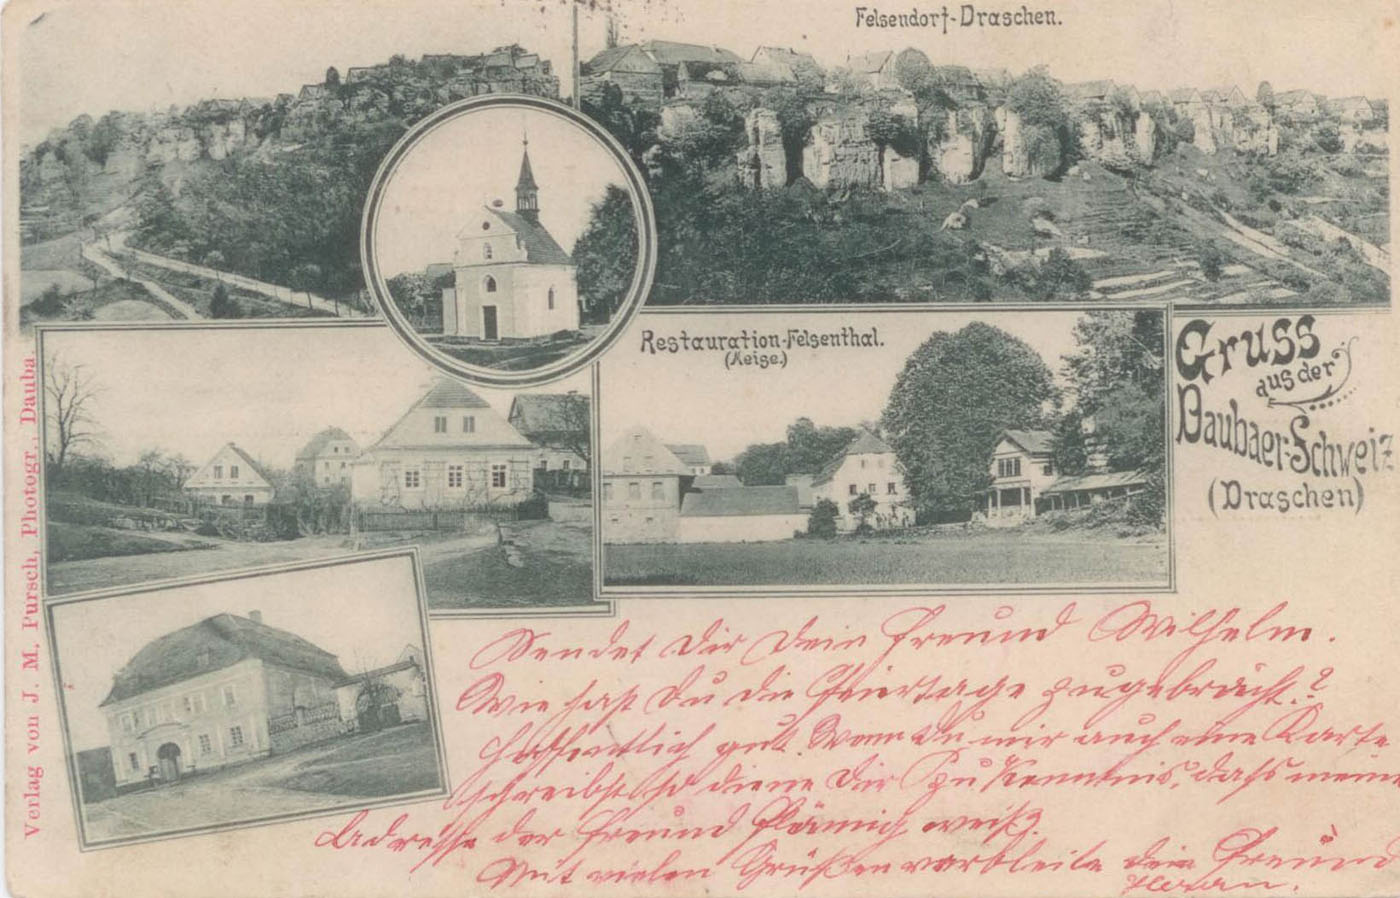 Felsendorf-Draschen.
Restauration-Felsenthal.
(Meise.)
Gruss
aus der
Daubaer-Schweiz
(Draschen)
Verlag von J. M. Pursch, Photogr., Dauba.
Sendet Dir Dein Freund Wilhelm.
Wie hast Du die Feiertage zugebracht?
Hoffentlich gut. Wenn Du mir auch eine Karte
schreibst so diene Dir zu Kenntnis, dass meine
Adresse der Freund weiß.
Mit vielen Grüßen verbleibe dein Freund